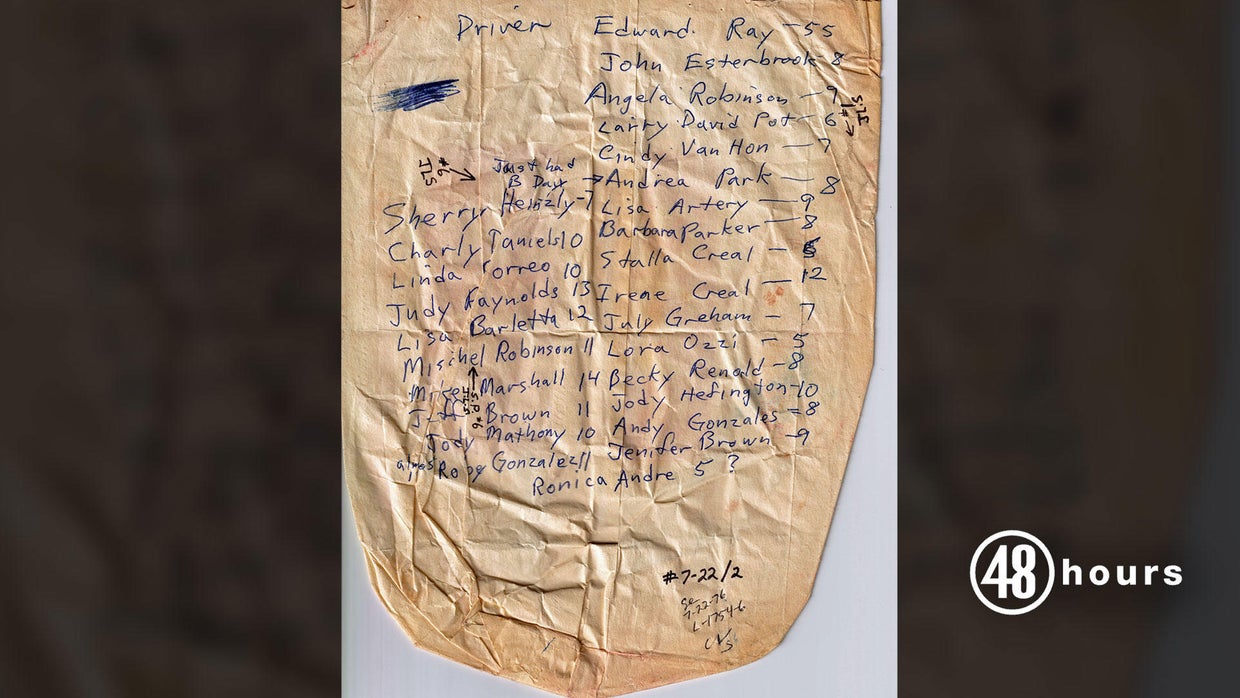 Driver Edward. Ray - 55
John Esterbrook 8
Angela Robinson - 9
Larry David Pot - 6
Cindy Van Hon - 7
Just had
B Day → Andrea Park - 8
Lisa Artery - 9
Barbara Parker - 8
Stalla Creal -
Irene Creal - 12
July Greham - 7
Lora Ozzi - 5
Becky Renold - 8
Jody Hefington - 10
Andy Gonzales = 8
Jenifer Brown - 9
Sherryr Heinzly - 7
Charly Taniels 10
Linda Torreo 10
Judy Raynolds 13
Lisa Barletta 12
Mischel Robinson 11
Mike Marshall 14
Jeff Brown 11
Jody Mathony 10
Gonzalez 11
Ronica Andre 5 ?
#6
JLS
JLS
#1
JLS
#7-22/2
7-22-76
48 hours